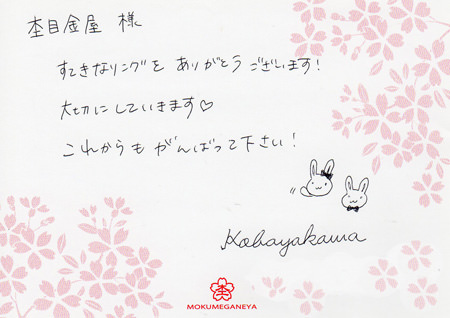 杢目金屋 様
すてきなリングを ありがとう ございます!
大切にしていきます♡
これからも がんばって下さい!
Kobayakawa
MOKUMEGANEYA